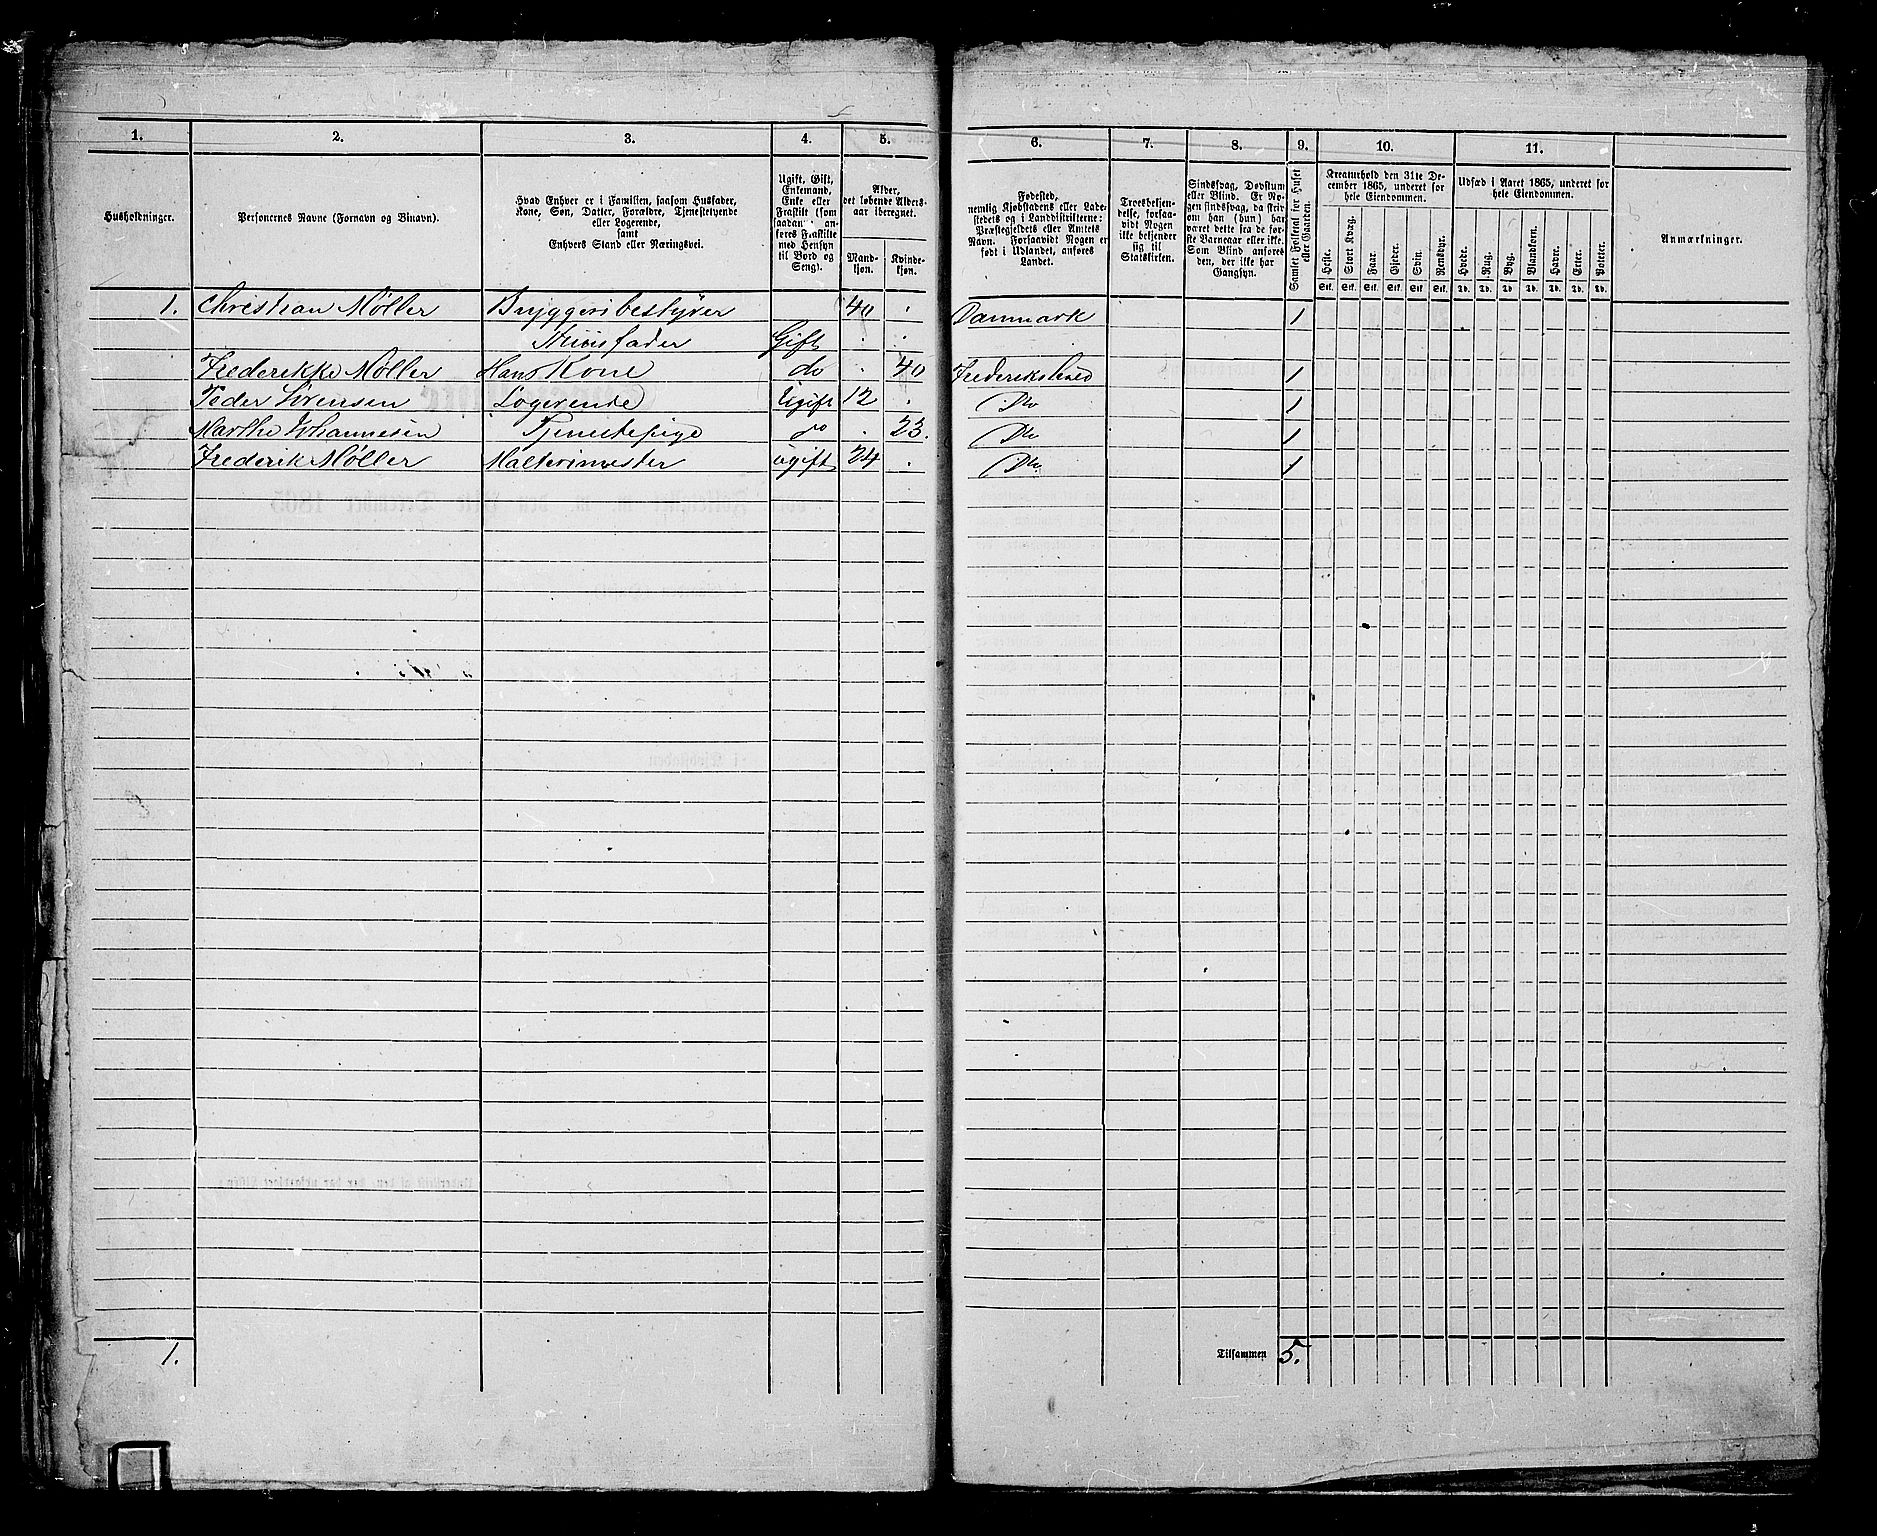 1. 2. 3. 4. 5. 6. 7. 8. 9. 10. 11.
Husholdninger.
Personernes Navne (Fornavn og Binavn).
Hvad Enhver er i Familien, saasom Husfader,
Kone, Søn, Datter, Forældre, Tjenestetyende
eller Logerende,
samt
Enhvers Stand eller Næringsvei.
Ugift, Gift,
Enkemand,
Enke eller
Fraskilt (som
saadan an-
føres Fraskilte
med Hensyn
til Bord og
Seng).
Alder,
det løbende Alders-
aar iberegnet.
Mand-
kjøn.
Kvinde-
kjøn.
Fødested,
nemlig Kjøbstadens eller Lade-
stedets og i Landdistrikterne:
Præstegjeldets eller Amtets
Navn. Forsaavidt Nogen er
født i Udlandet, anføres
Landet.
Troesbekjen-
delse, forsaa-
vidt Nogen
ikke bekjender
sig til
Statskirken.
Sindssvag, Døvstum
eller Blind. Er No-
gen sindssvag, da skriv
om han (hun) har
været dette fra de før-
ste Barneaar eller ikke.
Som Blind anføres
den, der ikke har
Gangsyn.
Samlet Folketal for Huset
eller Gaarden.
Kreaturhold den 31te De-
cember 1865, underet for
hele Eiendommen.
Heste. Stort Kvæg. Faar. Gjeder. Svin. Rensdyr.
Stk. Stk. Stk. Stk. Stk. Stk.
Udsæd i Aaret 1865, underet for
hele Eiendommen.
Hvede. Rug. Byg. Blandkorn. Havre. Erter. Poteter.
Td. Td. Td. Td. Td. Td. Td.
Anmærkninger.
1. Christian Møller Bryggeribestyrer 40 Danmark 1
Huusfader Gift
Frederikke Møller Hans Kone do 40 Frederikshald 1
Peder Sørensen Logerende Ugift 12 Do 1
Marthe Johannesen Tjenestepige do 23. Do 1
Frederik Møller Malterimester ugift 24 Do 1
1. Tilsammen 5.